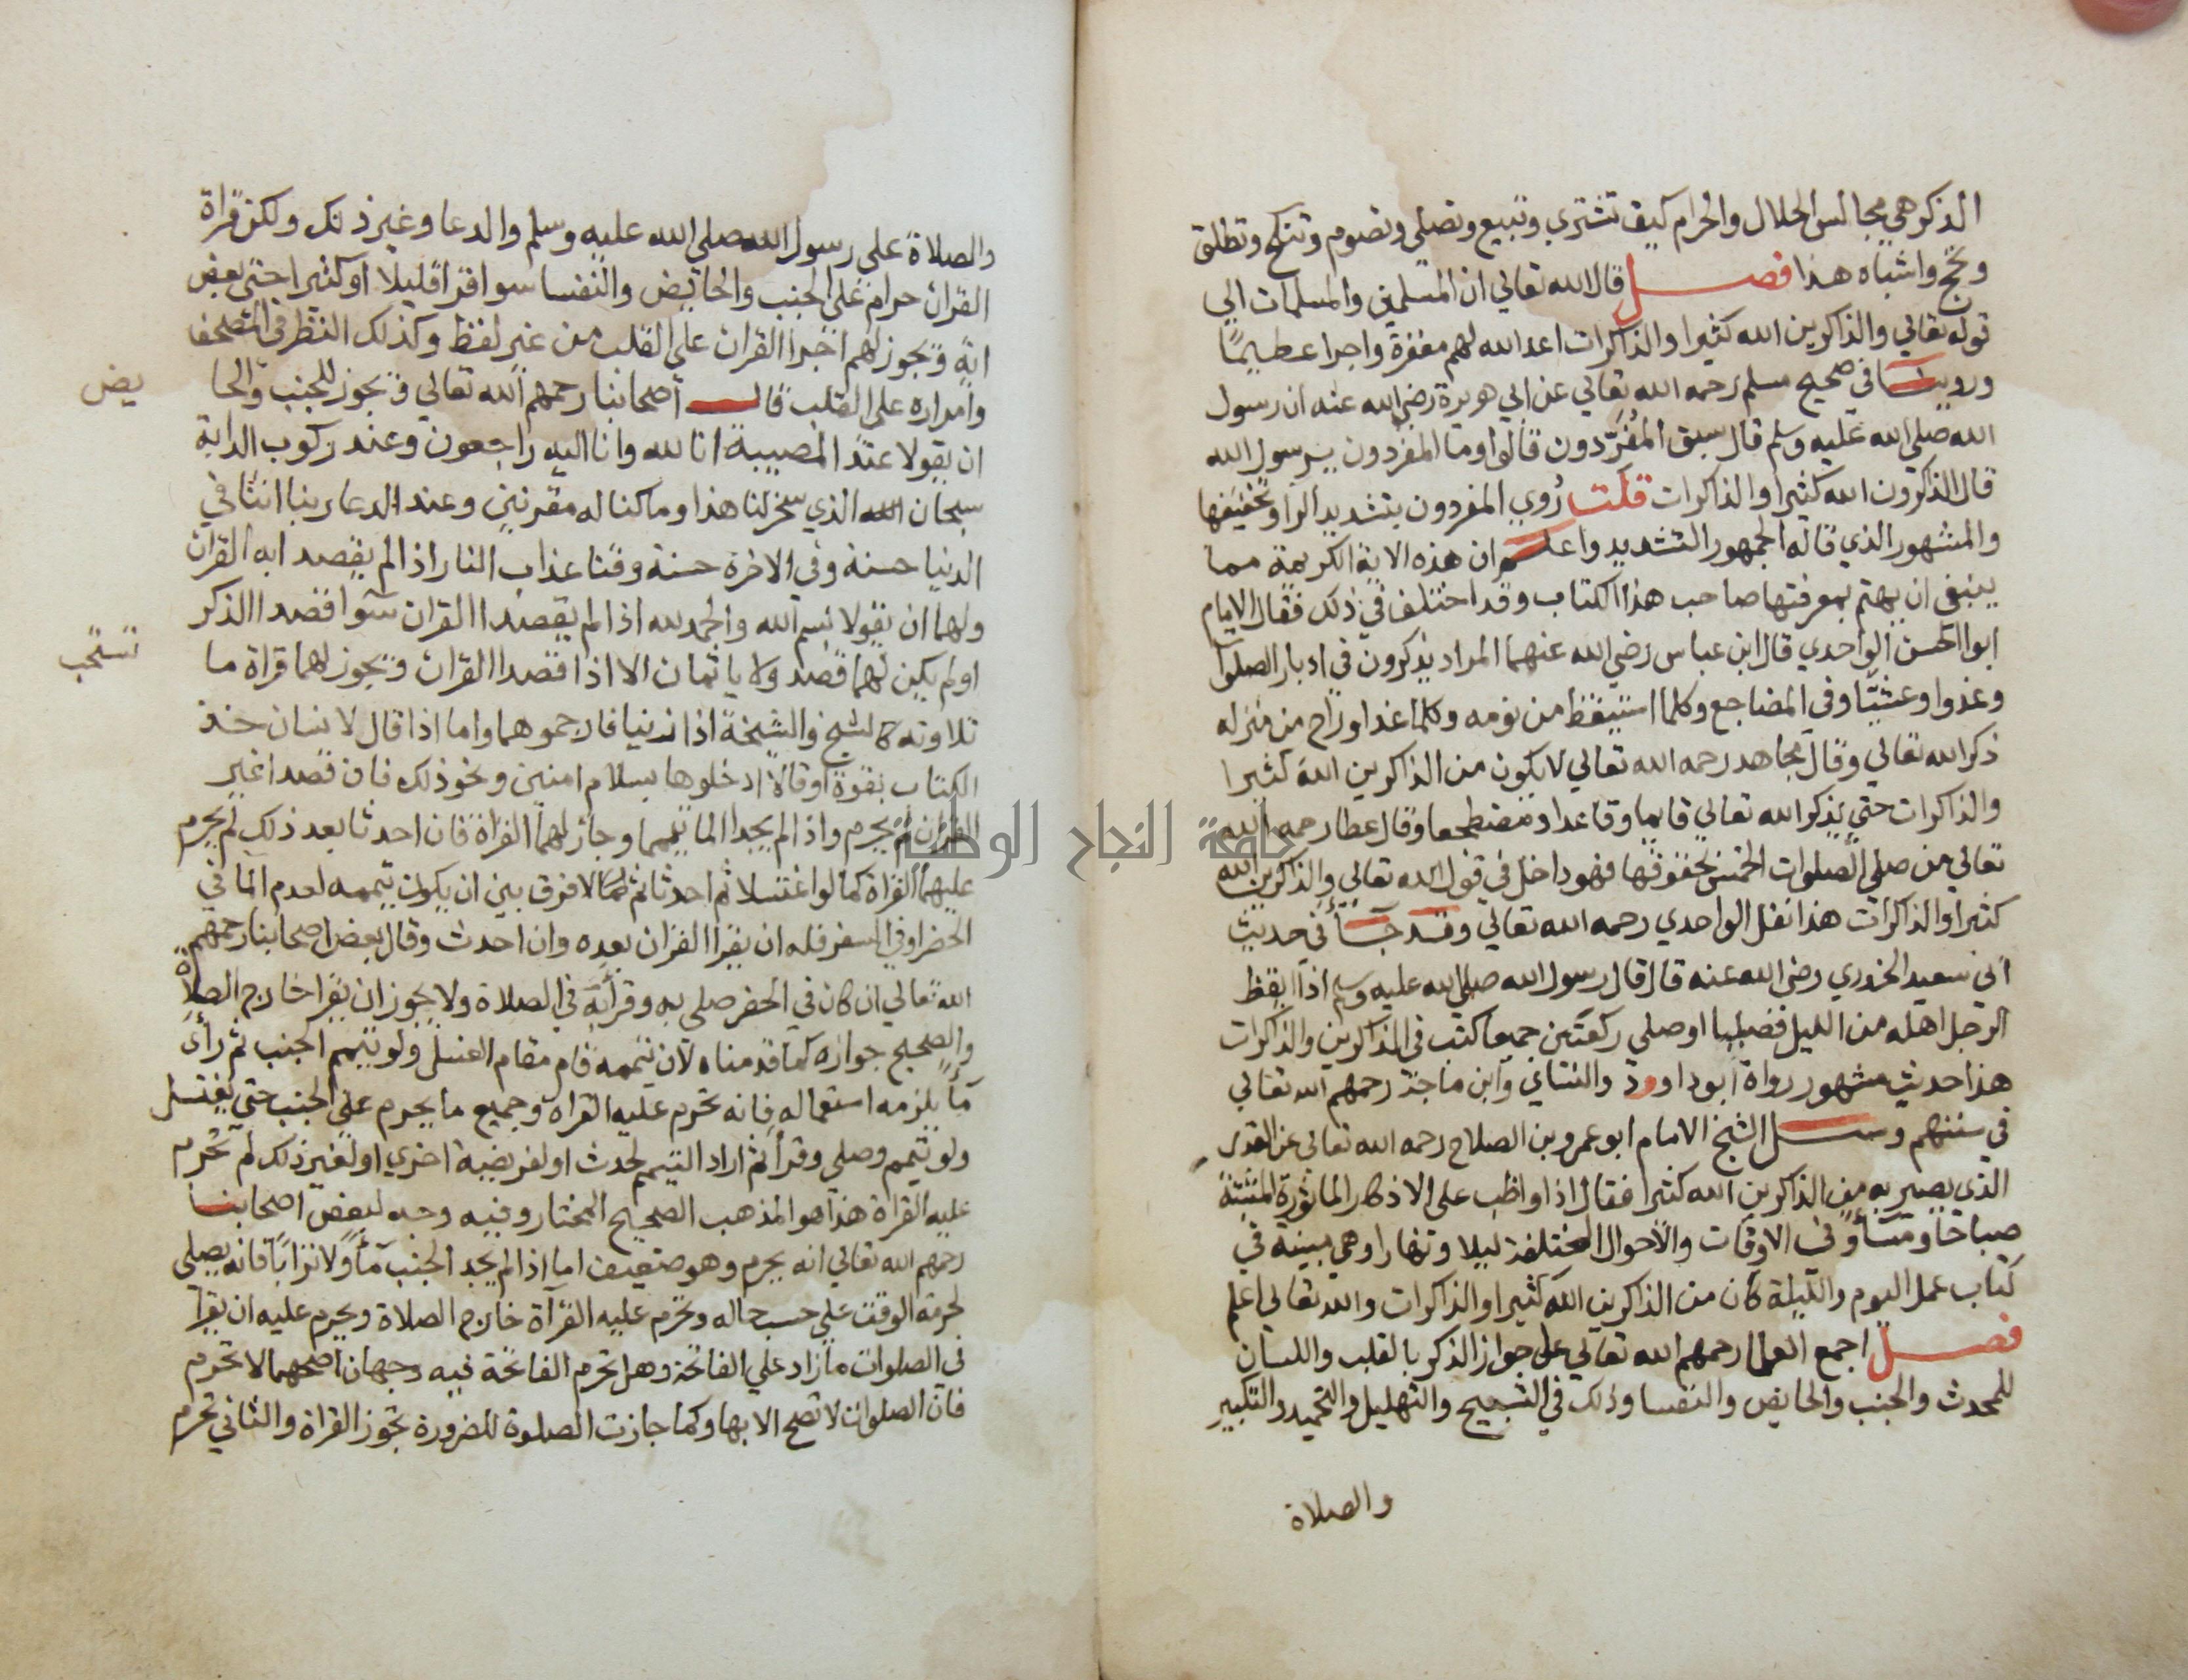 الذكر هي مجالس الحلال والحرام كيف تشتري وتبيع وتصلي وتصوم وتنكح وتطلق
وتحج واشباه هذا فصل قال الله تعالي ان المسلمين والمسلمات الي
قوله تعالي والذاكرين الله كثيرا والذاكرات اعد الله لهم مغفرة واجرا عظيمًا
وروينا في صحيح مسلم رحمه الله تعالي عن ابي هريرة رضي الله عنه ان رسول
الله صلي الله عليه وسلم قال سبق المُفَرِّدون قالوا وما المفردون يرسول الله
قال الذاكرون الله كثيرا والذاكرات قلت رُوي المفردون بتشديد الرا وتخفيفها
والمشهور الذي قاله الجمهور التشديد واعلم ان هذه الاية الكريمة مما
ينبغي ان يهتم بمعرفتها صاحب هذا الكتاب وقد اختلف في ذلك فقال الامام
ابو الحسن الواحدي قال ابن عباس رضي الله عنهما المراد يذكرون في ادبار الصلوا
وغدوا وعشيًّا وفي المضاجع وكلما استيقظ من نومه وكلما غدا وراح من منزله
ذكر الله تعالي وقال مجاهد رحمه الله تعالي لا يكون من الذاكرين الله كثيرا
والذاكرات حتي يذكر الله تعالي قايما وقاعدا ومضطجعا وقال عطا رحمه الله
تعالي من صلي الصلوات الخمس بحقوقها فهو داخل في قول الله تعالي والذاكرين الله
كثيرا والذاكرات هذا نقل الواحدي رحمه الله تعالي وقد جآ في حديث
ابي سعيد الخدري رضي الله عنه قال قال رسول الله صلي الله عليه وسلم اذا ايقظ
الرجل اهله من الليل فصليا او صلي ركعتين جميعا كتب في الذاكرين والذاكرات
هذا حديث مشهور رواه ابو داوود والنساي وابن ماجة رحمهم الله تعالي
في سننهم وسئل الشيخ الامام ابو عمرو بن الصلاح رحمه الله تعالي عن القدر
الذي يصير به من الذاكرين الله كثيرا فقال اذا واظب علي الاذكار الماثورة المثبتة
صباحا ومسآ وفي الاوقات والاحوال المختلفة ليلا ونهارا وهي مبينة في
كتاب عمل اليوم والليلة كان من الذاكرين الله كثيرا والذاكرات والله تعالي اعلم
فصل اجمع العلما رحمهم الله تعالي علي جواز الذكر بالقلب واللسان
للمحدث والجنب والحايض والنفسا وذلك في التسبيح والتهليل والتحميد والتكبير
والصلاة
والصلاة علي رسول الله صلي الله عليه وسلم والدعا وغير ذلك ولكن قراة
القران حرام علي الجنب والحايض والنفسا سوا قرا قليلا او كثيرا حتي بعض
اية ويجوز لهم اجرا القران علي القلب من غير لفظ وكذلك النظر في المصحف
وامراره علي القلب قال أصحابنا رحمهم الله تعالي ويجوز للجنب والحا
يض
ان يقولا عند المصيبة انا لله وانا اليه راجعون وعند ركوب الدابة
سبحان الله الذي سخر لنا هذا وما كنا له مقرنين وعند الدعا ربنا اتنا في
الدنيا حسنة وفي الاخرة حسنة وقنا عذاب النار اذا لم يقصد ابه القران
ولهما ان يقولا بسم الله والحمد لله اذا لم يقصدا القران سوا قصدا الذكر
او لم يكن لهما قصد ولا ياثمان الا اذا قصدا القران ويجوز لهما قراة ما
تستحب
تلاوته كالشيخ والشيخة اذا زنيا فارجموهما واما اذا قال لانسان خذ
الكتاب بقوة او قالا ادخلوها بسلام امنين ونحو ذلك فان قصدا غير
القران لم يحرم واذا لم يجدا الما تيمما وجاز لهما القراة فان احدثا بعد ذلك لم يحرم
عليهما القراة كما لو اغتسلا ثم احدثا ثم لا فرق بين ان يكون تيممه لعدم الما في
الحضر او في السفر فله ان يقرا القران بعده وان احدث وقال بعض اصحابنا رحمهم
الله تعالي ان كان في الحضر صلي به وقرأ به في الصلاة ولا يجوز ان يقرا خارج الصلاة
والصحيح جوازه كما قدمناه لان تيممه قام مقام الغسل ولو تيمم الجنب ثم رأي
مآ يلزمه استعماله فانه تحرم عليه القراة وجميع ما يحرم علي الجنب حتي يغتسل
ولو تيمم وصلي وقرأ ثم اراد التيمم لحدث او لفريضة اخري او لغير ذلك لم تحرم
عليه القراة هذا هو المذهب الصحيح المختار وفيه وجه لبعض اصحابنا
رحمهم الله تعالي انه يحرم وهو ضعيف اما اذا لم يجد الجنب مآ ولا ترابًا فانه يصلي
لحرمة الوقت علي حسب حاله وتحرم عليه القرآة خارج الصلاة ويحرم عليه ان يقرا
في الصلوات ما زاد علي الفاتحة وهل تحرم الفاتحة فيه وجهان اصحهما لا تحرم
فان الصلوات لا تصح الا بها وكما جازت الصلوة للضرورة تجوز القراة والثاني تحرم
جامعة النجاح الوطنية